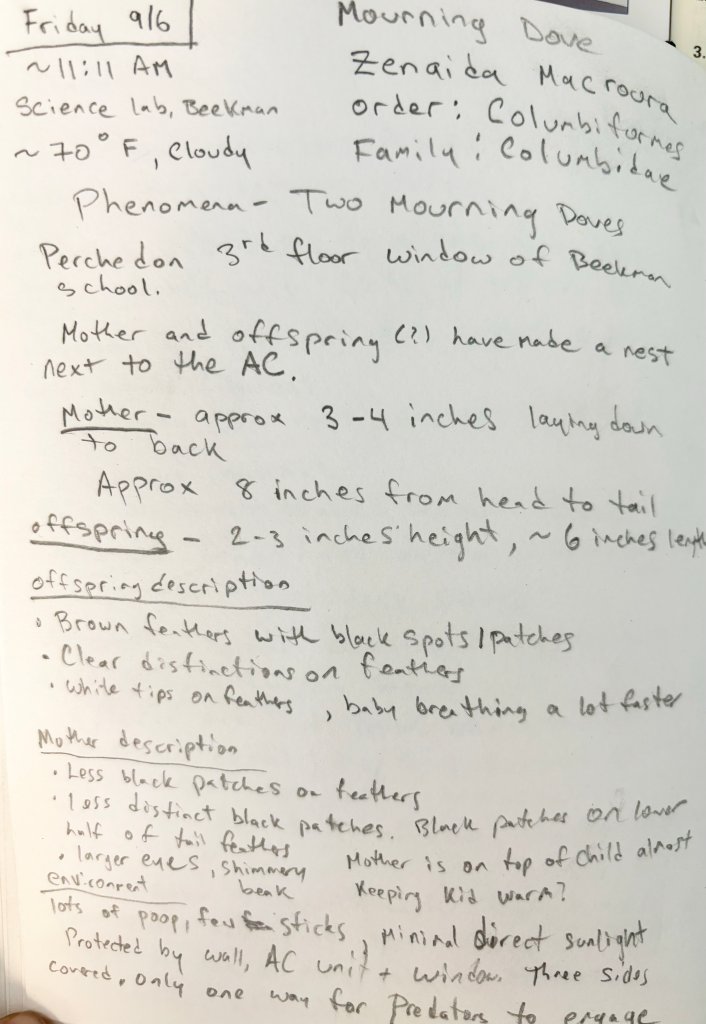 Friday 9/6
~11:11 AM
Science lab, Beekman
~70° F, Cloudy
Mourning Dove
Zenaida Macroura
order: Columbiformes
Family: Columbidae
3.
Phenomena - Two Mourning Doves
Perched on 3rd floor window of Beekman
school.
Mother and offspring (?) have made a nest
next to the AC.
Mother - approx 3-4 inches laying down
to back
Approx 8 inches from head to tail
offspring - 2-3 inches height, ~ 6 inches length
offspring description
• Brown feathers with black spots/patches
• Clear distinctions on feathers
• White tips on feathers, baby breathing a lot faster
Mother description
• Less black patches on feathers
• Less distinct black patches. Black patches on lower
half of tail feathers
• larger eyes, shimmery beak
Mother is on top of child almost
keeping kid warm?
environment
lots of poop, few sticks, Minimal direct sunlight
Protected by wall, AC unit + window. Three sides
covered, only one way for Predators to engage